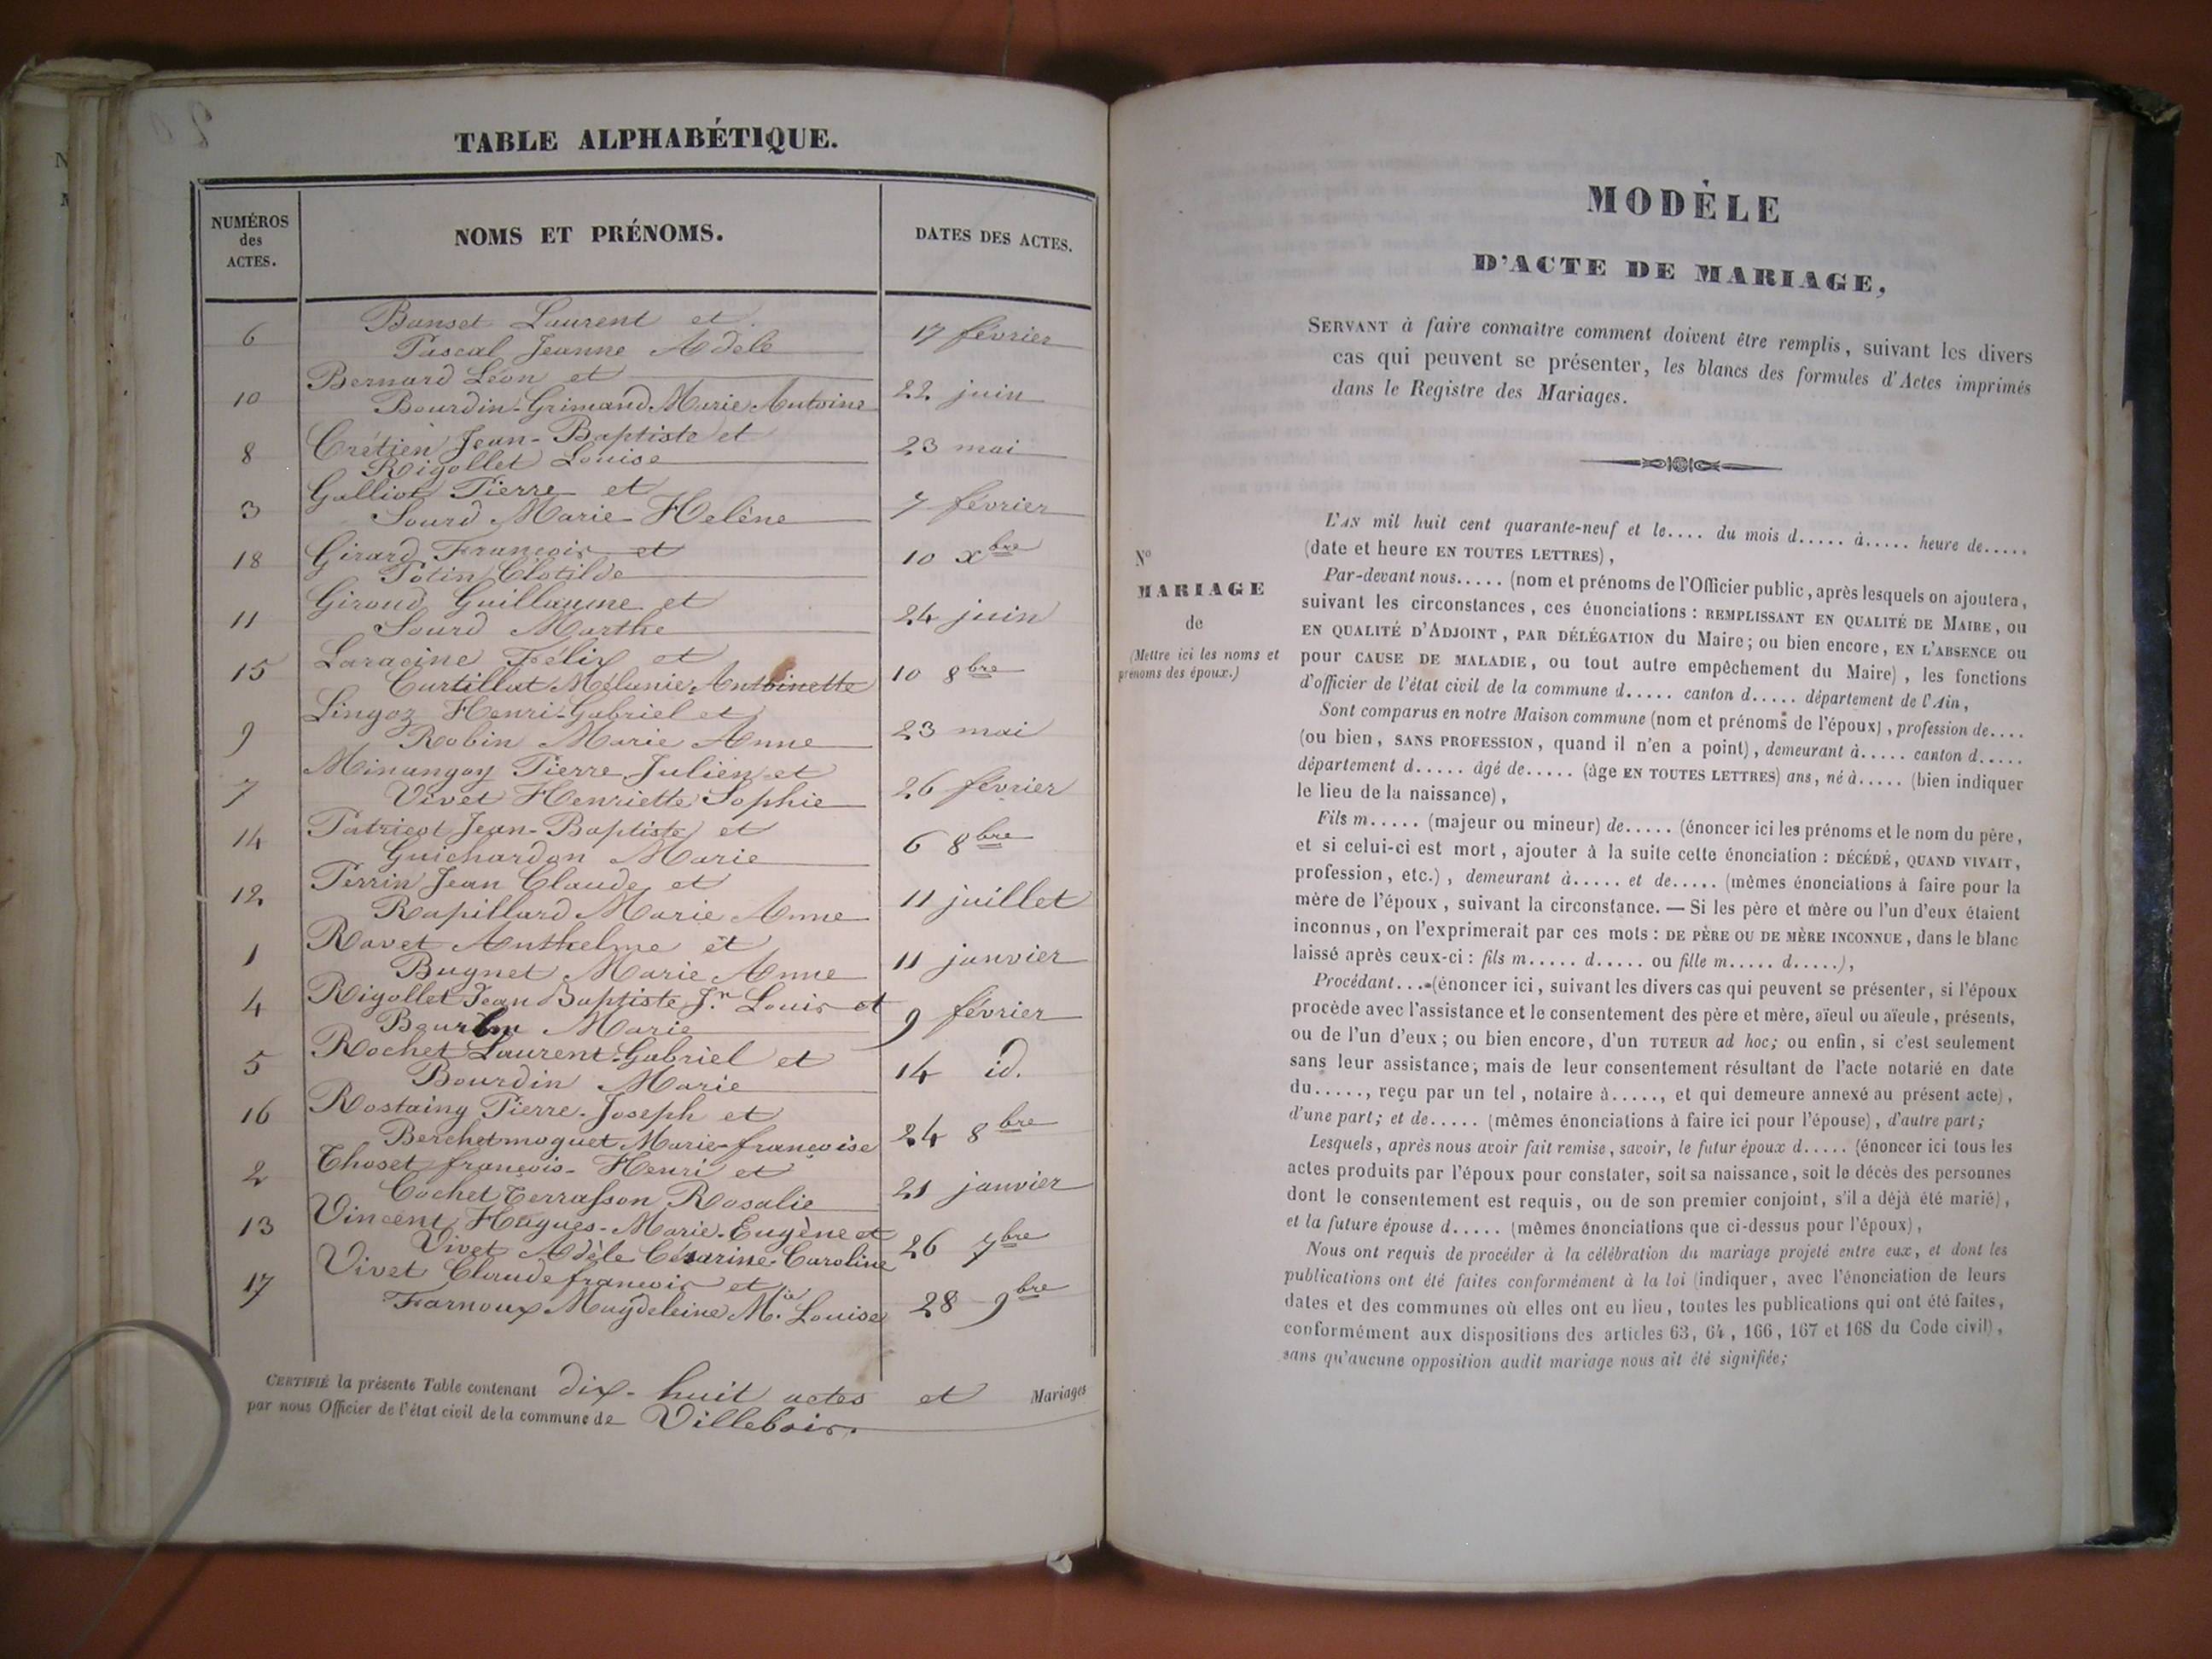 TABLE ALPHABÉTIQUE.
NUMÉROS
des
ACTES.
NOMS ET PRÉNOMS.
DATES DES ACTES.
6 Banset Laurent et 17 février
Pascal Jeanne Adele
10 Bernard Léon et 22 juin
Bourdin-Grimaud Marie Antoine
8 Crétien Jean-Baptiste et 23 mai
Rigollet Louise
3 Galliot Pierre et 7 février
Sourd Marie Helène
18 Girard François et 10 xbre
Potin Clotilde
11 Giroud Guillaume et 24 juin
Sourd Marthe
15 Laracine Félix et 10 8bre
Curtillat Mélanie Antoinette
9 Lingoz Henri-Gabriel et 23 mai
Robin Marie Anne
7 Minangoy Pierre Julien et 26 février
Vivet Henriette Sophie
14 Patricot Jean-Baptiste et 6 8bre
Guichardon Marie
12 Perrin Jean Claude et 11 juillet
Rapillard Marie Anne
1 Ravet Anthelme et 11 janvier
Bugnet Marie Anne
4 Rigollet Jean Baptiste Jn Louis et 9 février
Marie
5 Rochet Laurent-Gabriel et 14 id.
Bourdin Marie
16 Rostaing Pierre-Joseph et 24 8bre
Berchetmoguet Marie-françoise
2 Thoset françois-Henri et 21 janvier
Cochet Terrasson Rosalie
13 Vincent Hugues-Marie-Eugène et 26 7bre
Vivet Adèle Césarine-Caroline
17 Vivet Claude françois et 28 9bre
Farnoux Magdeleine Mie Louise
CERTIFIÉ la présente Table contenant dix-huit actes et Mariages
par nous Officier de l'état civil de la commune de Villebois.
MODÈLE
D'ACTE DE MARIAGE,
SERVANT à faire connaître comment doivent être remplis, suivant les divers
cas qui peuvent se présenter, les blancs des formules d'Actes imprimés
dans le Registre des Mariages.
No
MARIAGE
de
(Mettre ici les noms et
prénoms des époux.)
L'AN mil huit cent quarante-neuf et le.... du mois d..... à..... heure de.....
(date et heure EN TOUTES LETTRES),
Par-devant nous..... (nom et prénoms de l'Officier public, après lesquels on ajoutera,
suivant les circonstances, ces énonciations : REMPLISSANT EN QUALITÉ DE MAIRE, ou
EN QUALITÉ D'ADJOINT, PAR DÉLÉGATION du Maire; ou bien encore, EN L'ABSENCE ou
pour CAUSE DE MALADIE, ou tout autre empêchement du Maire), les fonctions
d'officier de l'état civil de la commune d..... canton d..... département de l'Ain,
Sont comparus en notre Maison commune (nom et prénoms de l'époux), profession de....
(ou bien, SANS PROFESSION, quand il n'en a point), demeurant à..... canton d.....
département d..... âgé de..... (âge EN TOUTES LETTRES) ans, né à..... (bien indiquer
le lieu de la naissance),
Fils m..... (majeur ou mineur) de..... (énoncer ici les prénoms et le nom du père,
et si celui-ci est mort, ajouter à la suite cette énonciation : DÉCÉDÉ, QUAND VIVAIT,
profession, etc.), demeurant à..... et de..... (mêmes énonciations à faire pour la
mère de l'époux, suivant la circonstance. — Si les père et mère ou l'un d'eux étaient
inconnus, on l'exprimerait par ces mots : DE PÈRE OU DE MÈRE INCONNUE, dans le blanc
laissé après ceux-ci : fils m..... d..... ou fille m..... d.....),
Procédant....(énoncer ici, suivant les divers cas qui peuvent se présenter, si l'époux
procède avec l'assistance et le consentement des père et mère, aïeul ou aïeule, présents,
ou de l'un d'eux; ou bien encore, d'un TUTEUR ad hoc; ou enfin, si c'est seulement
sans leur assistance, mais de leur consentement résultant de l'acte notarié en date
du....., reçu par un tel, notaire à....., et qui demeure annexé au présent acte),
d'une part; et de..... (mêmes énonciations à faire ici pour l'épouse), d'autre part;
Lesquels, après nous avoir fait remise, savoir, le futur époux d..... (énoncer ici tous les
actes produits par l'époux pour constater, soit sa naissance, soit le décès des personnes
dont le consentement est requis, ou de son premier conjoint, s'il a déjà été marié),
et la future épouse d..... (mêmes énonciations que ci-dessus pour l'époux),
Nous ont requis de procéder à la célébration du mariage projeté entre eux, et dont les
publications ont été faites conformément à la loi (indiquer, avec l'énonciation de leurs
dates et des communes où elles ont eu lieu, toutes les publications qui ont été faites,
conformément aux dispositions des articles 63, 64, 166, 167 et 168 du Code civil),
sans qu'aucune opposition audit mariage nous ait été signifiée;